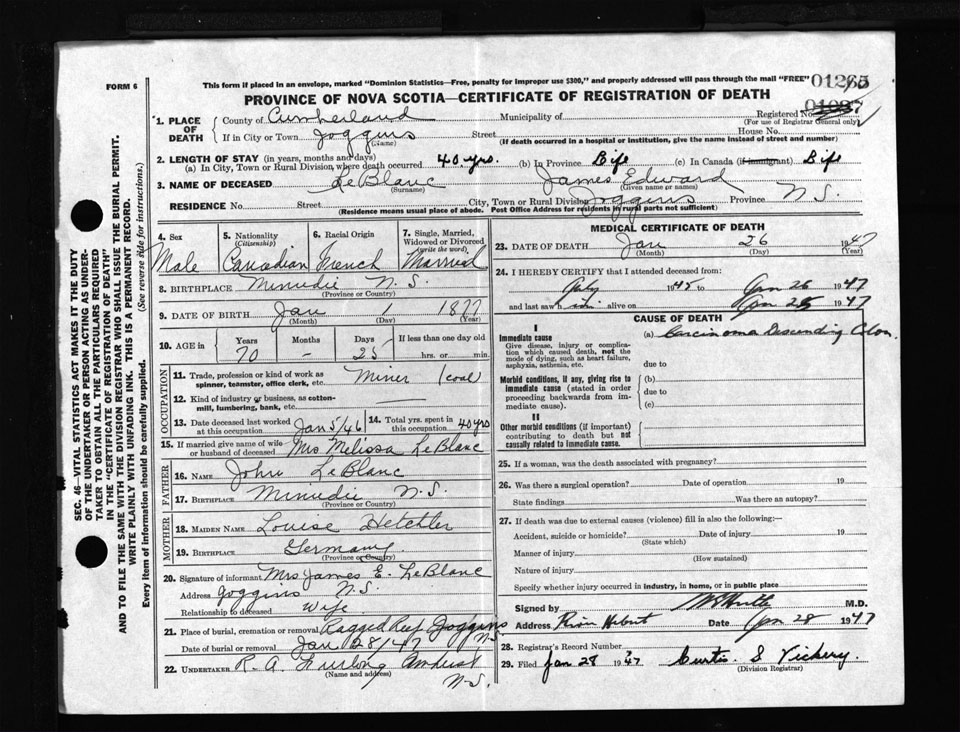 FORM 6
This form if placed in an envelope, marked "Dominion Statistics—Free, penalty for improper use $300," and properly addressed will pass through the mail "FREE"
PROVINCE OF NOVA SCOTIA—CERTIFICATE OF REGISTRATION OF DEATH
Registered No.
(For use of Registrar General only)
1. PLACE OF DEATH
County of Cumberland Municipality of
If in City or Town Joggins Street House No.
(Name) (If death occurred in a hospital or institution, give the name instead of street and number)
2. LENGTH OF STAY (in years, months and days)
(a) In City, Town or Rural Division where death occurred 40 yrs. (b) In Province Life (c) In Canada (if immigrant) Life
3. NAME OF DECEASED LeBlanc James Edward
(Surname) (Given name or names)
RESIDENCE No. Street City, Town or Rural Division Joggins Province N.S.
(Residence means usual place of abode. Post Office Address for residents in rural parts not sufficient)
4. Sex
Male
5. Nationality
(Citizenship)
Canadian
6. Racial Origin
French
7. Single, Married, Widowed or Divorced
(write the word)
Married
8. BIRTHPLACE Minudie N.S.
(Province or Country)
9. DATE OF BIRTH Jan 1 1877
(Month) (Day) (Year)
10. AGE in
Years Months Days If less than one day old
70 - 25 hrs. or min.
OCCUPATION
11. Trade, profession or kind of work as spinner, teamster, office clerk, etc. Miner (coal)
12. Kind of industry or business, as cotton-mill, lumbering, bank, etc.
13. Date deceased last worked at this occupation Jan 5/46
14. Total yrs. spent in this occupation 40 yrs
15. If married give name of wife or husband of deceased Mrs Melissa LeBlanc
FATHER
16. NAME John LeBlanc
17. BIRTHPLACE Minudie N.S.
MOTHER
18. MAIDEN NAME Louise
19. BIRTHPLACE Germany
(Province or Country)
20. Signature of informant Mrs James E. LeBlanc
Address Joggins N.S.
Relationship to deceased Wife
21. Place of burial, cremation or removal Ragged Reef Joggins N.S.
Date of burial or removal Jan 28/47
22. UNDERTAKER R. A. Furlong Amherst
(Name and address) N.S.
MEDICAL CERTIFICATE OF DEATH
23. DATE OF DEATH Jan 26 1947
(Month) (Day) (Year)
24. I HEREBY CERTIFY that I attended deceased from:
July 1945 to Jan 26 1947
and last saw him alive on Jan 25 1947
CAUSE OF DEATH
I
Immediate cause
Give disease, injury or complication which caused death, not the mode of dying, such as heart failure, asphyxia, asthenia, etc.
(a) Carcinoma Descending Colon
due to
Morbid conditions, if any, giving rise to immediate cause (stated in order proceeding backwards from immediate cause)
(b)
due to
(c)
II
Other morbid conditions (if important) contributing to death but not causally related to immediate cause.
25. If a woman, was the death associated with pregnancy?
26. Was there a surgical operation? Date of operation 19
State findings Was there an autopsy?
27. If death was due to external causes (violence) fill in also the following:—
Accident, suicide or homicide? Date of injury 19
(State which)
Manner of injury
(How sustained)
Nature of injury
Specify whether injury occurred in industry, in home, or in public place
Signed by M.D.
Address River Hebert Date Jan 28 1947
28. Registrar's Record Number
29. Filed Jan 28 1947 Curtis. S Vickery.
(Division Registrar)
SEC. 46—VITAL STATISTICS ACT MAKES IT THE DUTY
OF THE UNDERTAKER OR PERSON ACTING AS UNDER-
TAKER TO OBTAIN ALL THE PARTICULARS REQUIRED
IN THE "CERTIFICATE OF REGISTRATION OF DEATH"
AND TO FILE THE SAME WITH THE DIVISION REGISTRAR WHO SHALL ISSUE THE BURIAL PERMIT.
WRITE PLAINLY WITH UNFADING INK. THIS IS A PERMANENT RECORD.
Every item of information should be carefully supplied. (See reverse side for instructions.)